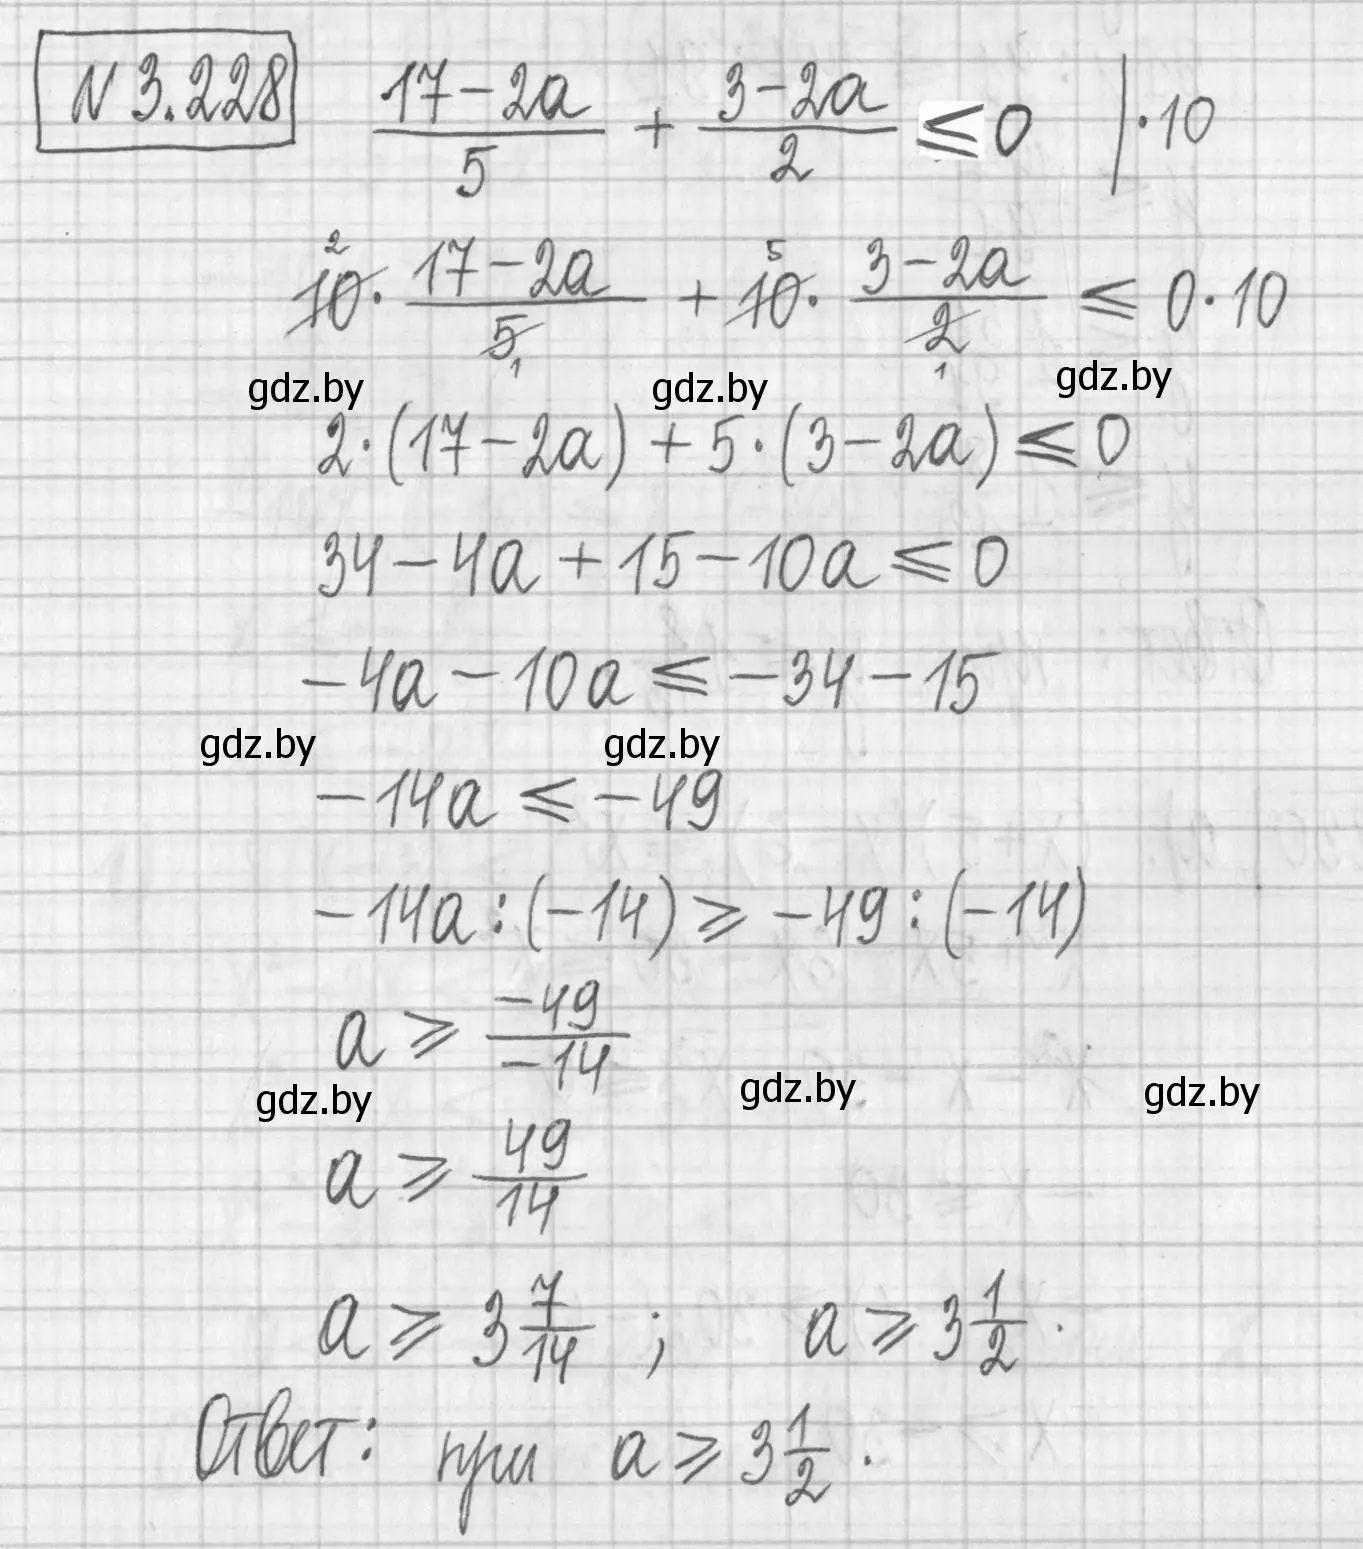 N 3.228 (17-2a)/5 + (3-2a)/2 ≤ 0 | · 10
10² · (17-2a)/5₁ + 10⁵ · (3-2a)/2₁ ≤ 0 · 10
gdz.by gdz.by gdz.by
2 · (17 - 2a) + 5 · (3 - 2a) ≤ 0
34 - 4a + 15 - 10a ≤ 0
-4a - 10a ≤ -34 - 15
gdz.by gdz.by
-14a ≤ -49
-14a : (-14) ≥ -49 : (-14)
a ≥ -49/-14
gdz.by gdz.by gdz.by
a ≥ 49/14
a ≥ 3 7/14 ; a ≥ 3 1/2 .
Ответ: при a ≥ 3 1/2 .